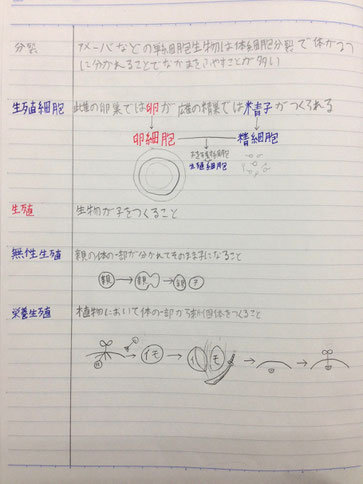 分裂 アメーバなどの単細胞生物は体細胞分裂で体が2つ
に分かれることでなかまをふやすことが多い
生殖細胞 雌の卵巣では卵が 雄の精巣では精子がつくられる
卵細胞 精細胞
生殖細胞
生殖 生物が子をつくること
無性生殖 親の体の一部が分かれてそのまま子になること
親 親 親 子
栄養生殖 植物において体の一部から新個体をつくること
イモ イモ